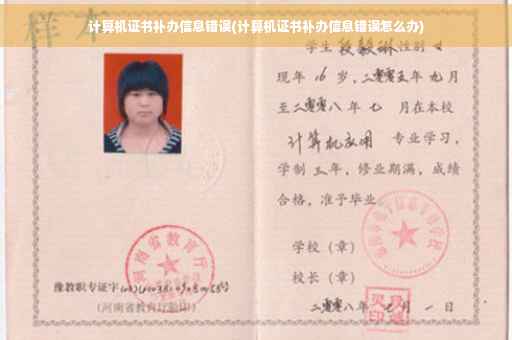 计算机证书补办信息错误(计算机证书补办信息错误怎么办)
样本
学生段毅琳性别女
现年16岁，二零零五年九月
至二零零八年七月在本校
计算机应用 专业学习，
学制三年，修业期满，成绩
合格，准予毕业。
学校（章）
校长（章）
二零零八年七月一日
河南省教育厅
豫教职专证字
（河南省教育厅验印）